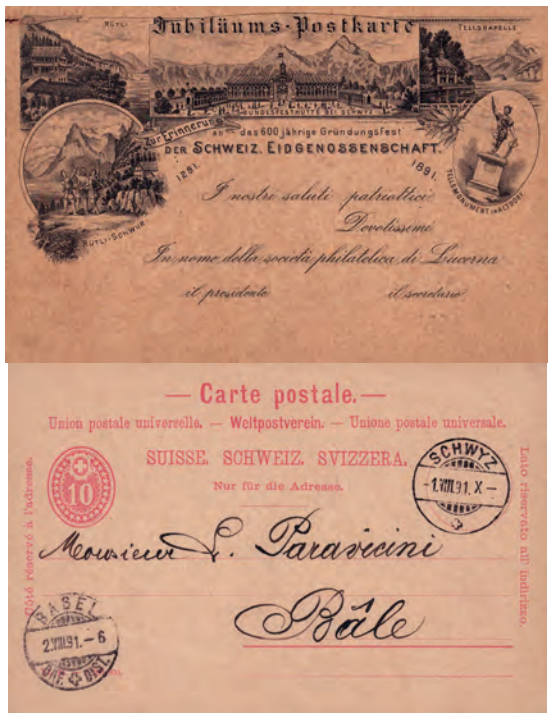 RÜTLI
Jubiläums-Postkarte
TELLSKAPELLE
BUNDESFESTHÜTTE BEI SCHWYZ
Zur Erinnerung
an das 600 jährige Gründungsfest
DER SCHWEIZ. EIDGENOSSENSCHAFT.
1291.
1891.
RÜTLI-SCHWUR
TELLSMONUMENT IN ALTDORF
I nostri saluti patriottici
Devotissimi
In nome della società philatelica di Lucerna
il presidente il secretario
— Carte postale. —
Union postale universelle. — Weltpostverein. — Unione postale universale.
SUISSE. SCHWEIZ. SVIZZERA.
Nur für die Adresse.
10
SCHWYZ
-1.VIII.91. X-
Côté réservé à l'adresse.
Lato riservato all' indirizzo.
Monsieur L. Paravicini
Bâle
BASEL
2.VIII.91.-6
BRF. DIST.